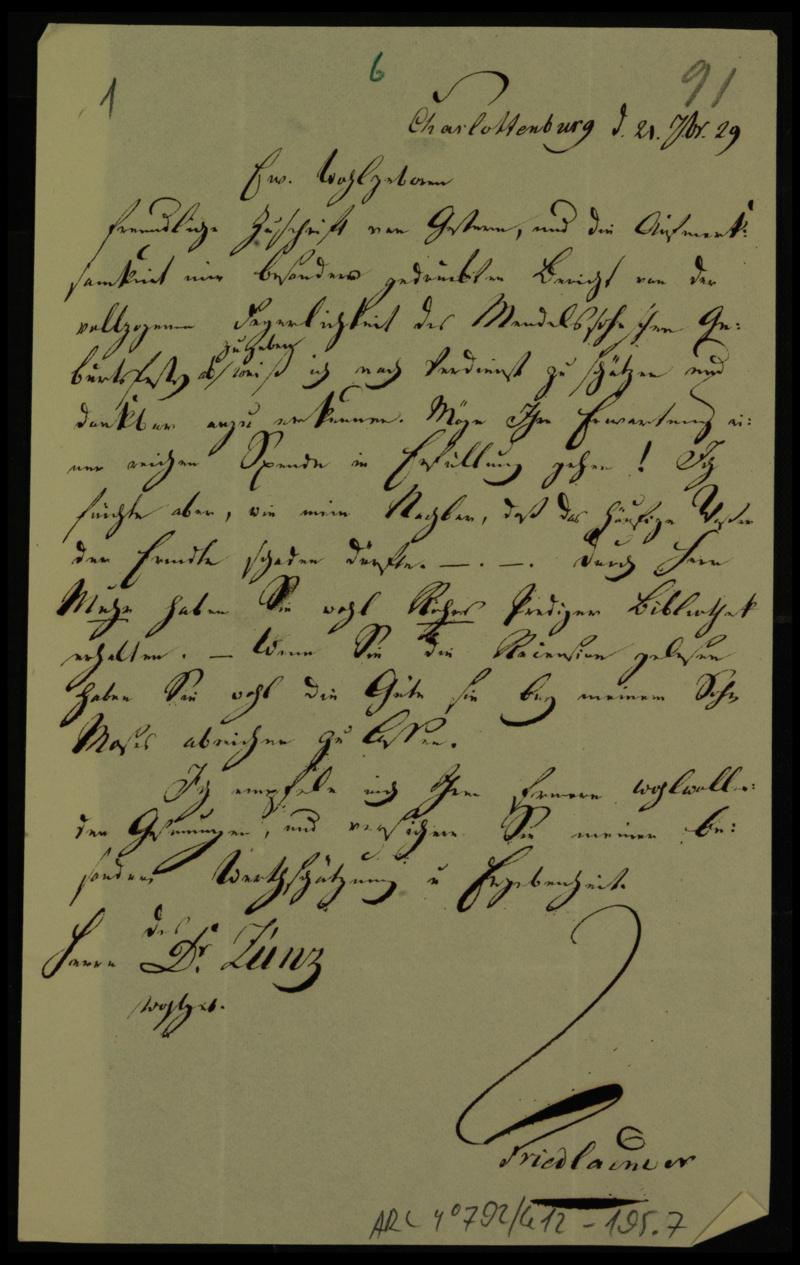 1
6
91
Charlottenburg d. 21. 7br. 29
Ew. Wohlgeboren
freundliche Zuschrift von Gestern, und die Aufmerk:
samkeit mir besonders gedruckten Bericht von der
vollzogenen Feyerlichkeit des Mendelssohnschen Ge:
zugeben
burtsfestes weiß ich nach Verdienst zu schätzen und
dankbar anzu erkennen. Möge Ihre Erwartung ei:
ner reichen Spende in Erfüllung gehen! Ich
fürchte aber, wie mein Nachbar, daß das häufige
der Erndte schaden dürfte. —.—. Durch Herrn
Muhr haben Sie wohl Röhrs Prediger Bibliothek
erhalten. — Wenn Sie die Recension gelesen
haben Sie wohl die Güte sie bey meinem Sohn
Moses abreichen zu lassen.
Ich empfele mich Ihren fernern wohlwollen:
den Gesinnungen, und versichere Sie meiner be:
sondern Werthschätzung u Ergebenheit.
des
Herrn Dr. Zunz
Wohlgeb.
Friedlaender
ARC 4° 792/G12 - 195.7